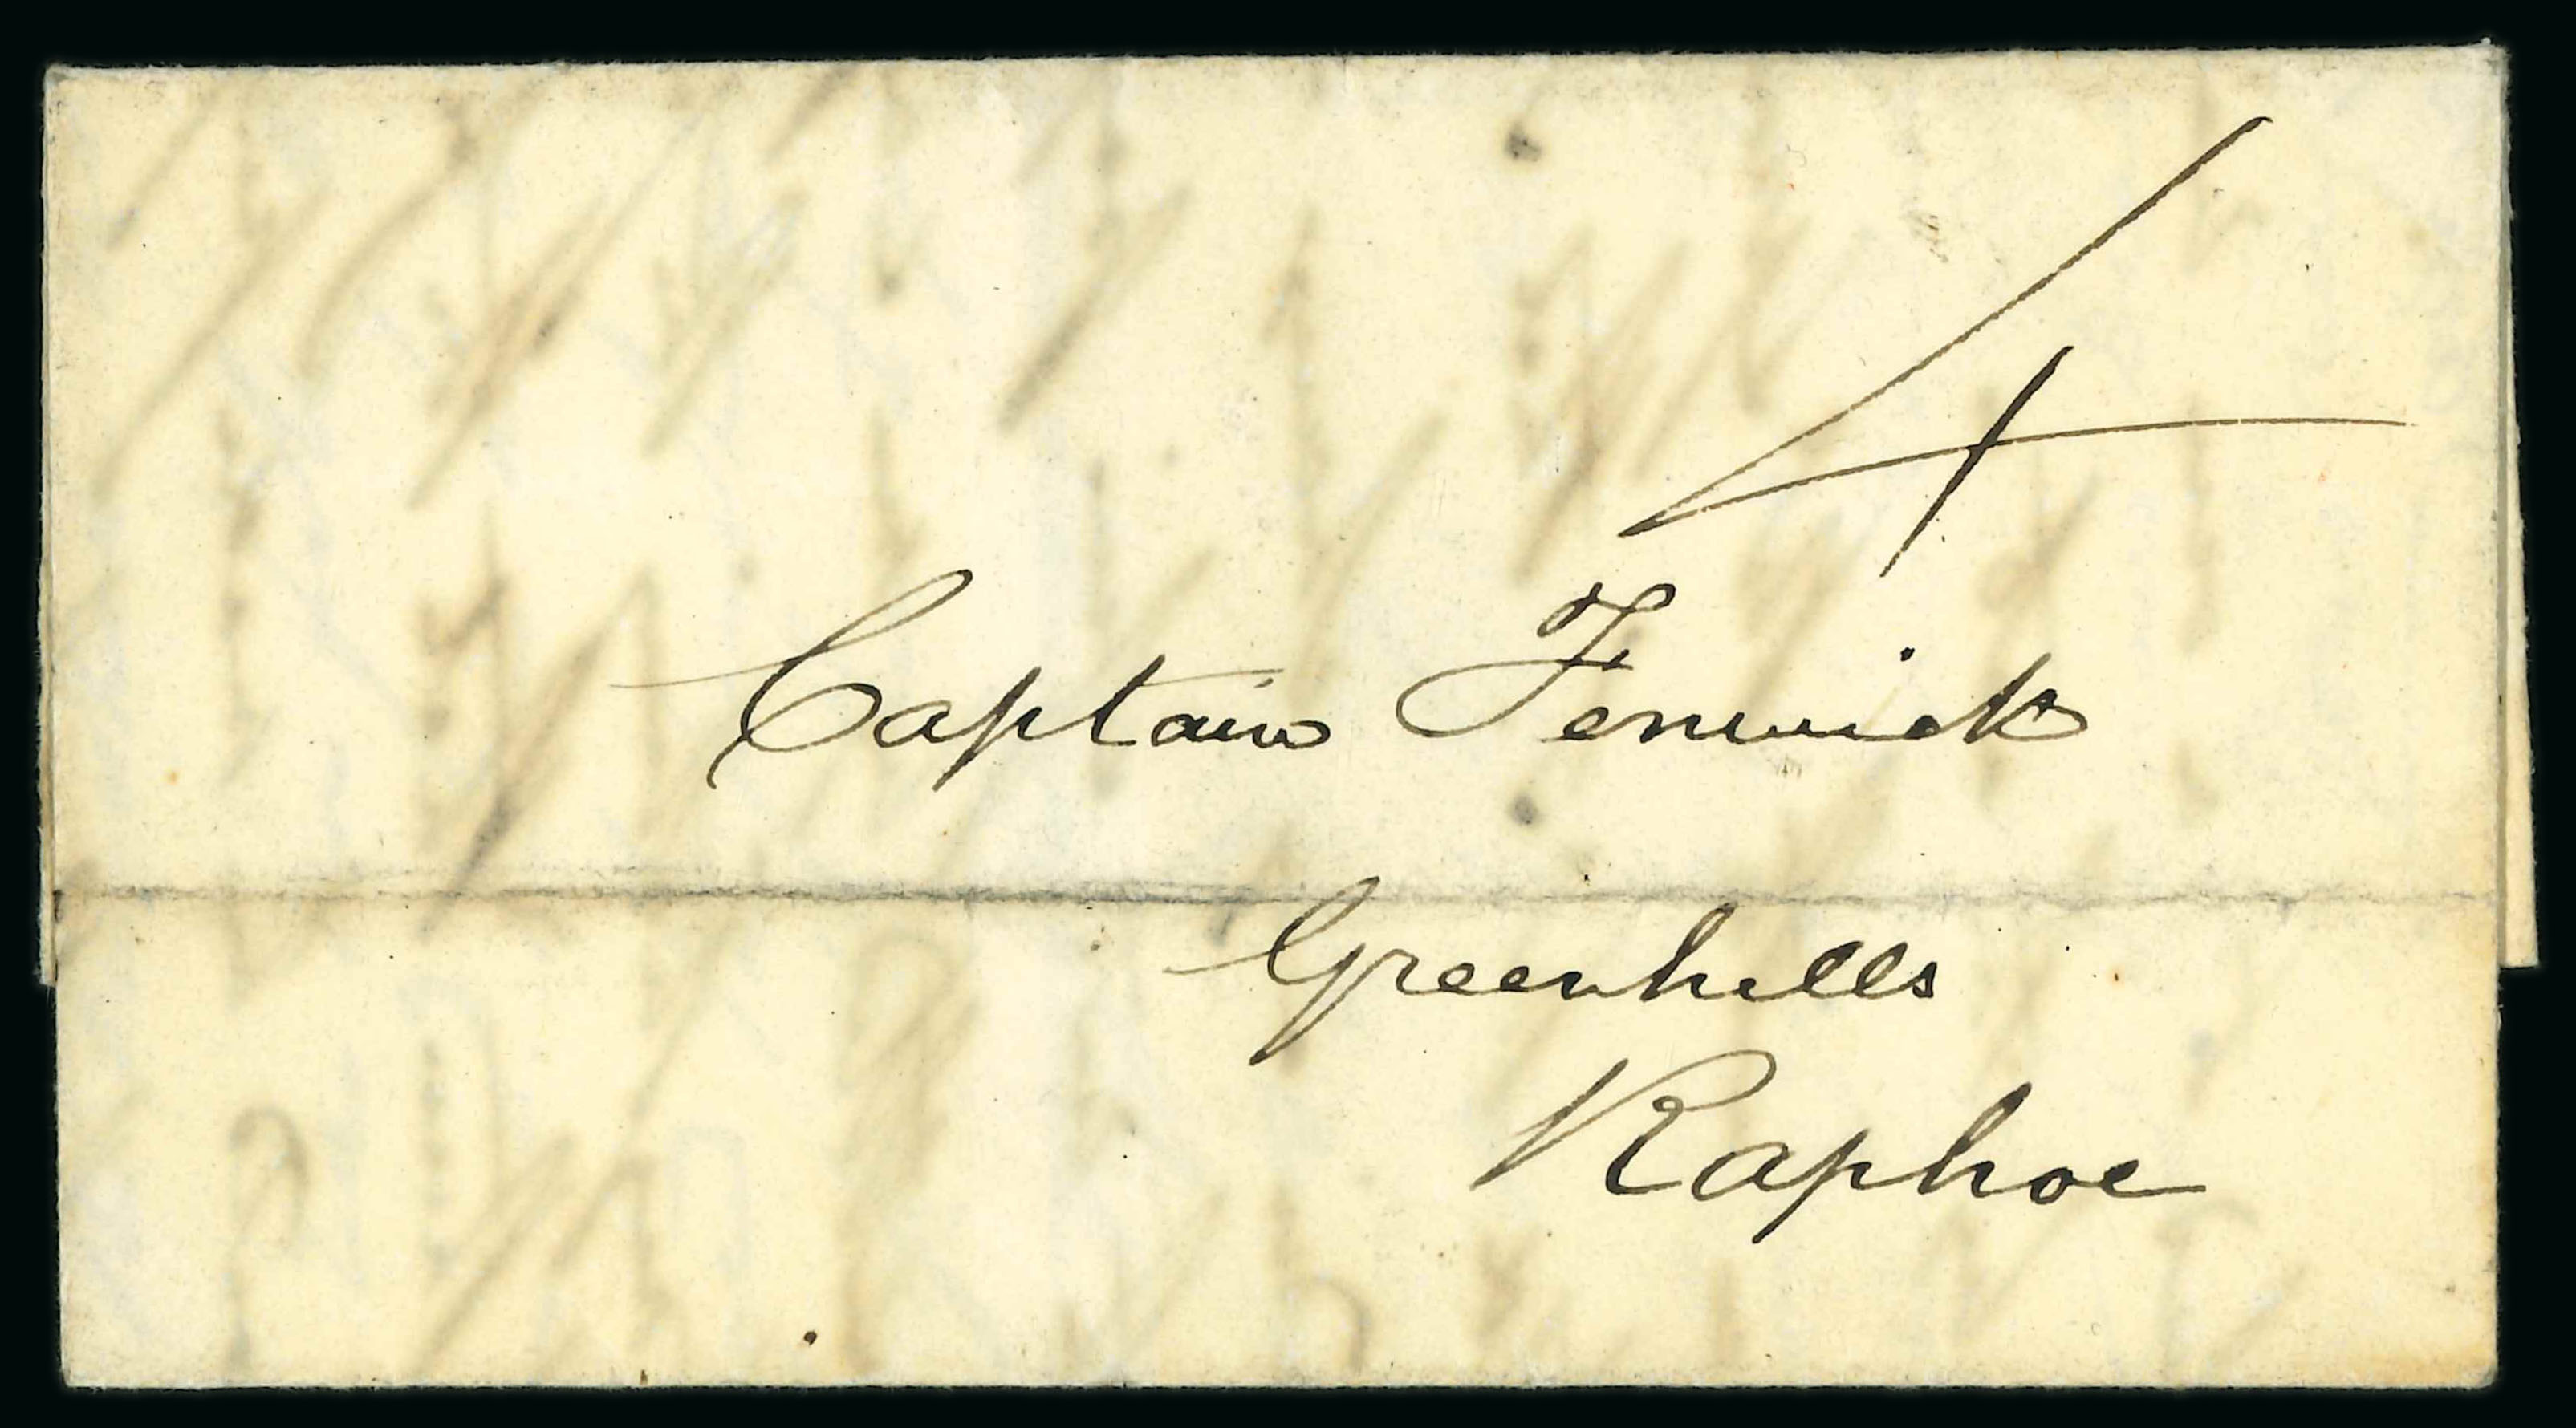 4
Captain Fenwick
Greenhills
Raphoe